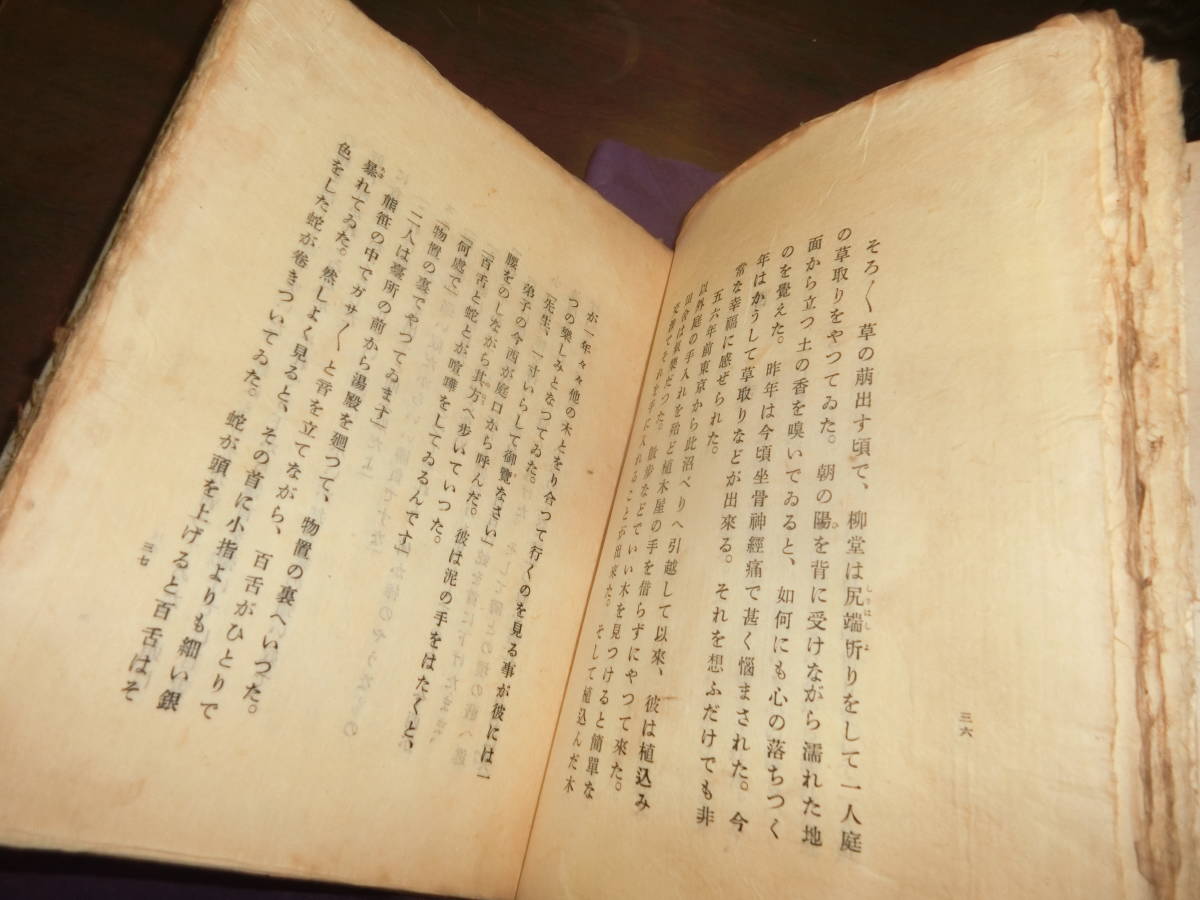 そろ〱草の萠出す頃で、柳堂は尻端折りをして一人庭
の草取りをやつてゐた。朝の陽を背に受けながら濡れた地
面から立つ土の香を嗅いでゐると、如何にも心の落ちつく
のを覺えた。昨年は今頃坐骨神經痛で甚く惱まされた。今
年はかうして草取りなどが出來る。それを想ふだけでも非
常な幸福に感ぜられた。
五六年前東京から此沼べりへ引越して以來、彼は植込み
以外庭の手入れを殆ど植木屋の手を借らずにやつて來た。
田舍は氣樂だつた。散歩などでいい木を見つけると簡單な
交渉でそれを手に入れることが出來た。そして植込んだ木
三六
が一年々々他の木とをり合つて行くのを見る事が彼には一
つの樂しみとなつてゐた。
「先生、一寸いらして御覽なさい」
弟子の今西が庭口から呼んだ。彼は泥の手をはたくと、
腰をのしながら其方へ歩いていつた。
「百舌と蛇とが喧嘩をしてゐるんです」
「何處で」
「物置の裏でやつてゐます」
二人は墓所の前から湯殿を廻つて、物置の裏へいつた。
熊笹の中でガサ〱と音を立てながら、百舌がひとりで
暴れてゐた。然しよく見ると、その首に小指よりも細い銀
色をした蛇が卷きついてゐた。蛇が頭を上げると百舌はそ
三七